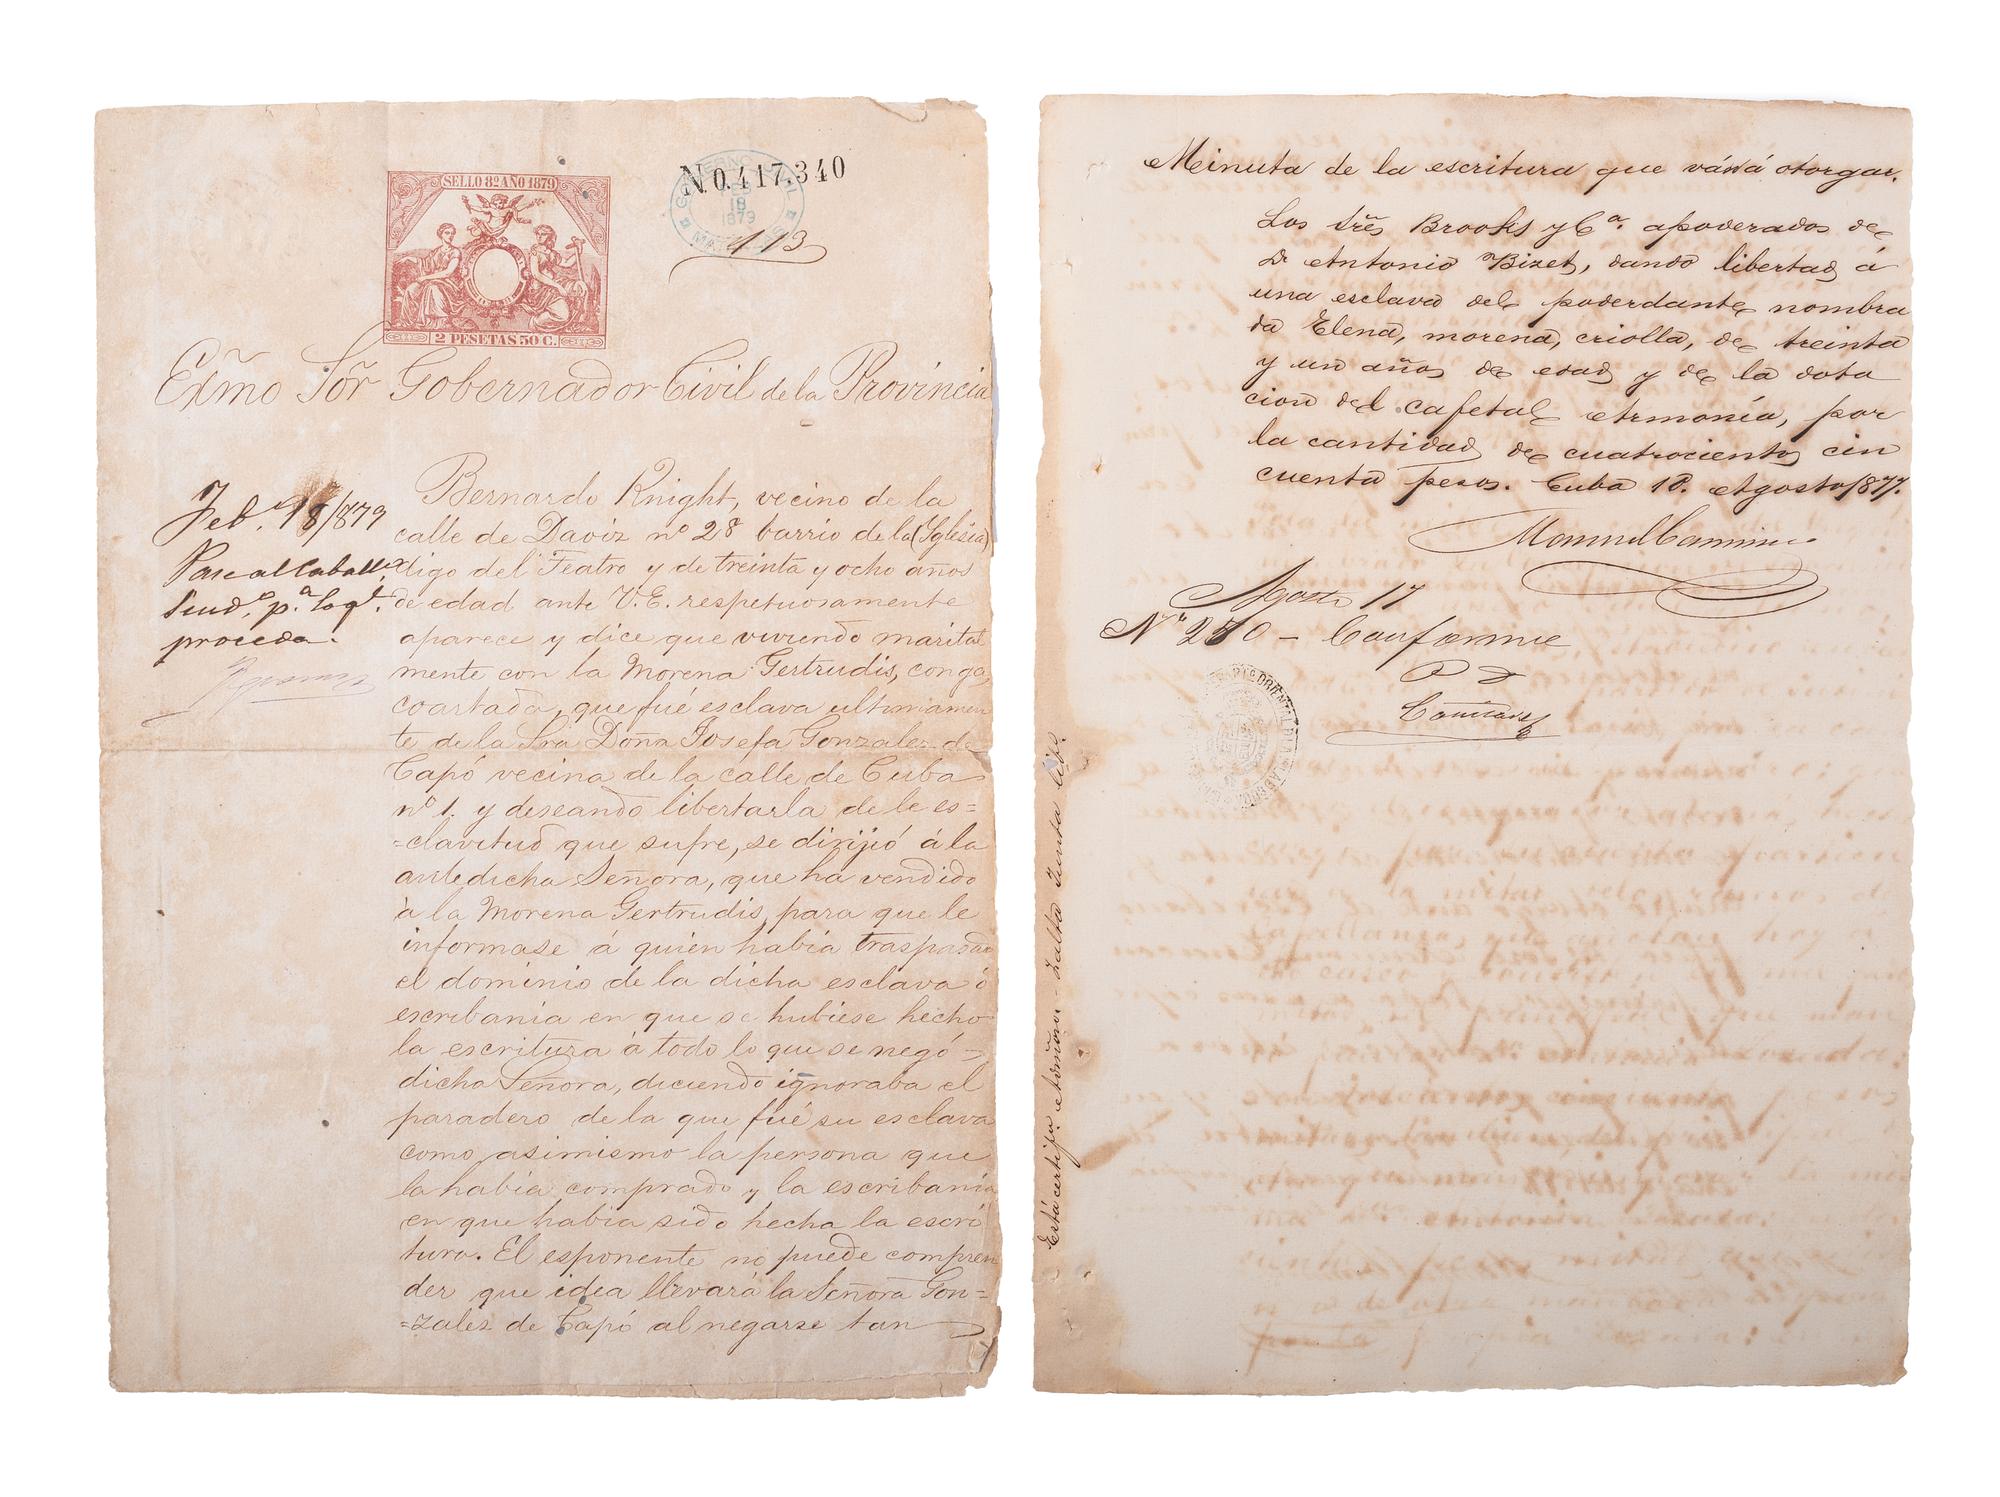 SELLO 8º AÑO 1879
2 PESETAS 50 C.
N 0.417.340
GOBIERNO CIVIL
18
1879
MATANZAS
113
Exmo Sor Gobernador Civil de la Provincia
Feb.º 18/879
Pase al Caballº
Sind.º p.ª lo q.
proceda.
Bernardo Knight, vecino de la
calle de Daoiz nº 28 barrio de la (Yglésia)
digo del Teatro y de treinta y ocho años
de edad ante V.E. respetuosamente
aparece y dice que viviendo marital
mente con la Morena Gertrudis, conga,
coartada, que fué esclava ultimamen
te de la Sra Doña Josefa Gonzales de
Capó vecina de la calle de Cuba
nº 1. y deseando libertarla de le es=
=clavitud que sufre, se dirijió á la
antedicha Señora, que ha vendido
á la Morena Gertrudis, para que le
informase á quien habia traspasado
el dominio de la dicha esclava ó
escribania en que se hubiese hecho
la escritura á todo lo que se negó
dicha Señora, diciendo ignoraba el
paradero de la que fué su esclava
como asimismo la persona que
la habia comprado y la escribania
en que habia sido hecha la escri
tura. El esponente no puede compren
der que idea llevará la Señora Gon=
=zales de Capó al negarse tan
Minuta de la escritura que vá á otorgar.
Los Sres Brooks y Cª. apoderados de
Dn Antonio Bizet, dando libertad á
una esclava del poderdante nombra
da Elena, morena, criolla, de treinta
y un años de edad y de la dota
cion del cafetal Armonía, por
la cantidad de cuatrocientos cin
cuenta pesos. Cuba 10. Agosto/877.
Manuel Caminero
Agosto 17
Nº 210 - Conforme
P I
Cañizares
Está certifn